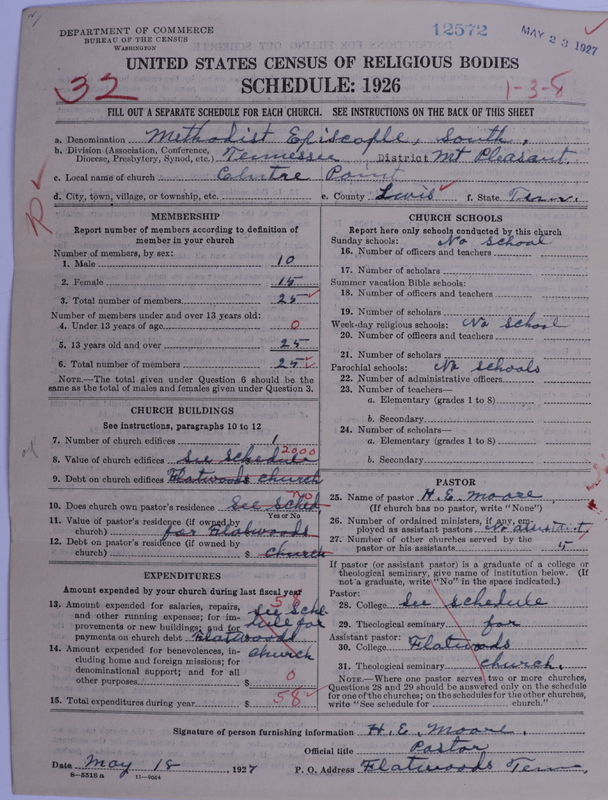 DEPARTMENT OF COMMERCE
BUREAU OF THE CENSUS
WASHINGTON
12572
MAY 23 1927
UNITED STATES CENSUS OF RELIGIOUS BODIES
SCHEDULE: 1926
32
1-3-8
FILL OUT A SEPARATE SCHEDULE FOR EACH CHURCH. SEE INSTRUCTIONS ON THE BACK OF THIS SHEET
a. Denomination Methodist Episcople, South,
b. Division (Association, Conference, Diocese, Presbytery, Synod, etc.) Tennessee District Mt Pleasant.
c. Local name of church Centre Point
d. City, town, village, or township, etc. e. County Lewis f. State Tenn,
MEMBERSHIP
Report number of members according to definition of
member in your church
Number of members, by sex:
1. Male 10
2. Female 15
3. Total number of members 25
Number of members under and over 13 years old:
4. Under 13 years of age 0
5. 13 years old and over 25
6. Total number of members 25
NOTE.—The total given under Question 6 should be the
same as the total of males and females given under Question 3.
CHURCH BUILDINGS
See instructions, paragraphs 10 to 12
7. Number of church edifices 1
8. Value of church edifices See Schedule 2000
9. Debt on church edifices Flatwoods church
10. Does church own pastor's residence? See Sched no
Yes or No
11. Value of pastor's residence (if owned by
church) for Flatwoods
12. Debt on pastor's residence (if owned by
church) $ church
EXPENDITURES
Amount expended by your church during last fiscal year
13. Amount expended for salaries, repairs, 58 See Sche
and other running expenses; for im- dule for
provements or new buildings; and for
payments on church debt Flatwoods
14. Amount expended for benevolences, in- church
cluding home and foreign missions; for
denominational support; and for all
other purposes $ 0
15. Total expenditures during year $ 58
CHURCH SCHOOLS
Report here only schools conducted by this church
Sunday schools: No School
16. Number of officers and teachers
17. Number of scholars
Summer vacation Bible schools:
18. Number of officers and teachers
19. Number of scholars
Week-day religious schools: No school
20. Number of officers and teachers
21. Number of scholars
Parochial schools: No schools
22. Number of administrative officers
23. Number of teachers—
a. Elementary (grades 1 to 8)
b. Secondary
24. Number of scholars—
a. Elementary (grades 1 to 8)
b. Secondary
PASTOR
25. Name of pastor H. E. Moore,
(If church has no pastor, write "None")
26. Number of ordained ministers, if any, em-
ployed as assistant pastors No assistant
27. Number of other churches served by the
pastor or his assistants 5
If pastor (or assistant pastor) is a graduate of a college or
theological seminary, give name of institution below. (If
not a graduate, write "No" in the space indicated.)
Pastor:
28. College See Schedule
29. Theological seminary for
Assistant pastor:
30. College Flatwoods
31. Theological seminary church.
NOTE.—Where one pastor serves two or more churches,
Questions 28 and 29 should be answered only on the schedule
for one of the churches; on the schedules for the other churches,
write "See schedule for church."
Signature of person furnishing information H. E. Moore,
Official title Pastor
Date May 18, 1927 P. O. Address Flatwoods Tenn,
8-5518 a 11-9064